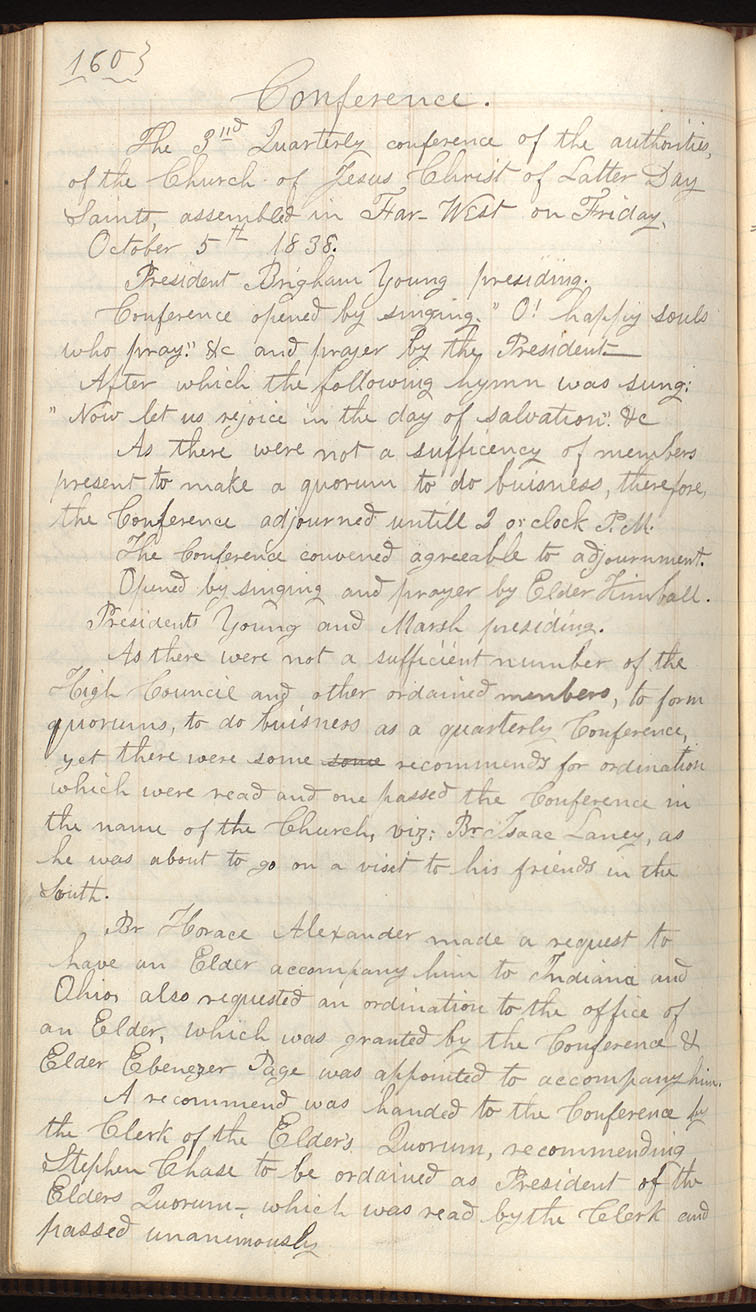 160}
Conference.
The 3rd Quarterly conference of the authorities,
of the Church of Jesus Christ of Latter Day
Saints, assembled in Far-West on Friday,
October 5th 1838.
President Brigham Young presiding.
Conference opened by singing. " O! happy souls
who pray." &c and prayer by the President—
After which the following hymn was sung:
" Now let us rejoice in the day of salvation". &c
As there were not a sufficency of members
present to make a quorum to do buisness, therefore,
the Conference adjourned untill 2 o,clock P.M.
The Conference convened agreeable to adjournment.
Opened by singing and prayer by Elder Kimball.
Presidents Young and Marsh presiding.
As there were not a sufficient number of the
High Council and other ordained members, to form
quorums, to do buisness as a quarterly Conference,
yet there were some some recommends for ordination
which were read and one passed the Conference in
the name of the Church, viz: Br Isaac Laney, as
he was about to go on a visit to his friends in the
South.
Br Horace Alexander made a request to
have an Elder accompany him to Indiana and
Ohio, also requested an ordination to the office of
an Elder, which was granted by the Conference &
Elder Ebenezer Page was appointed to accompany him.
A recommend was handed to the Conference by
the Clerk of the Elders Quorum, recommending
Stephen Chase to be ordained as President of the
Elders Quorum—, which was read by the Clerk and
passed unanimously